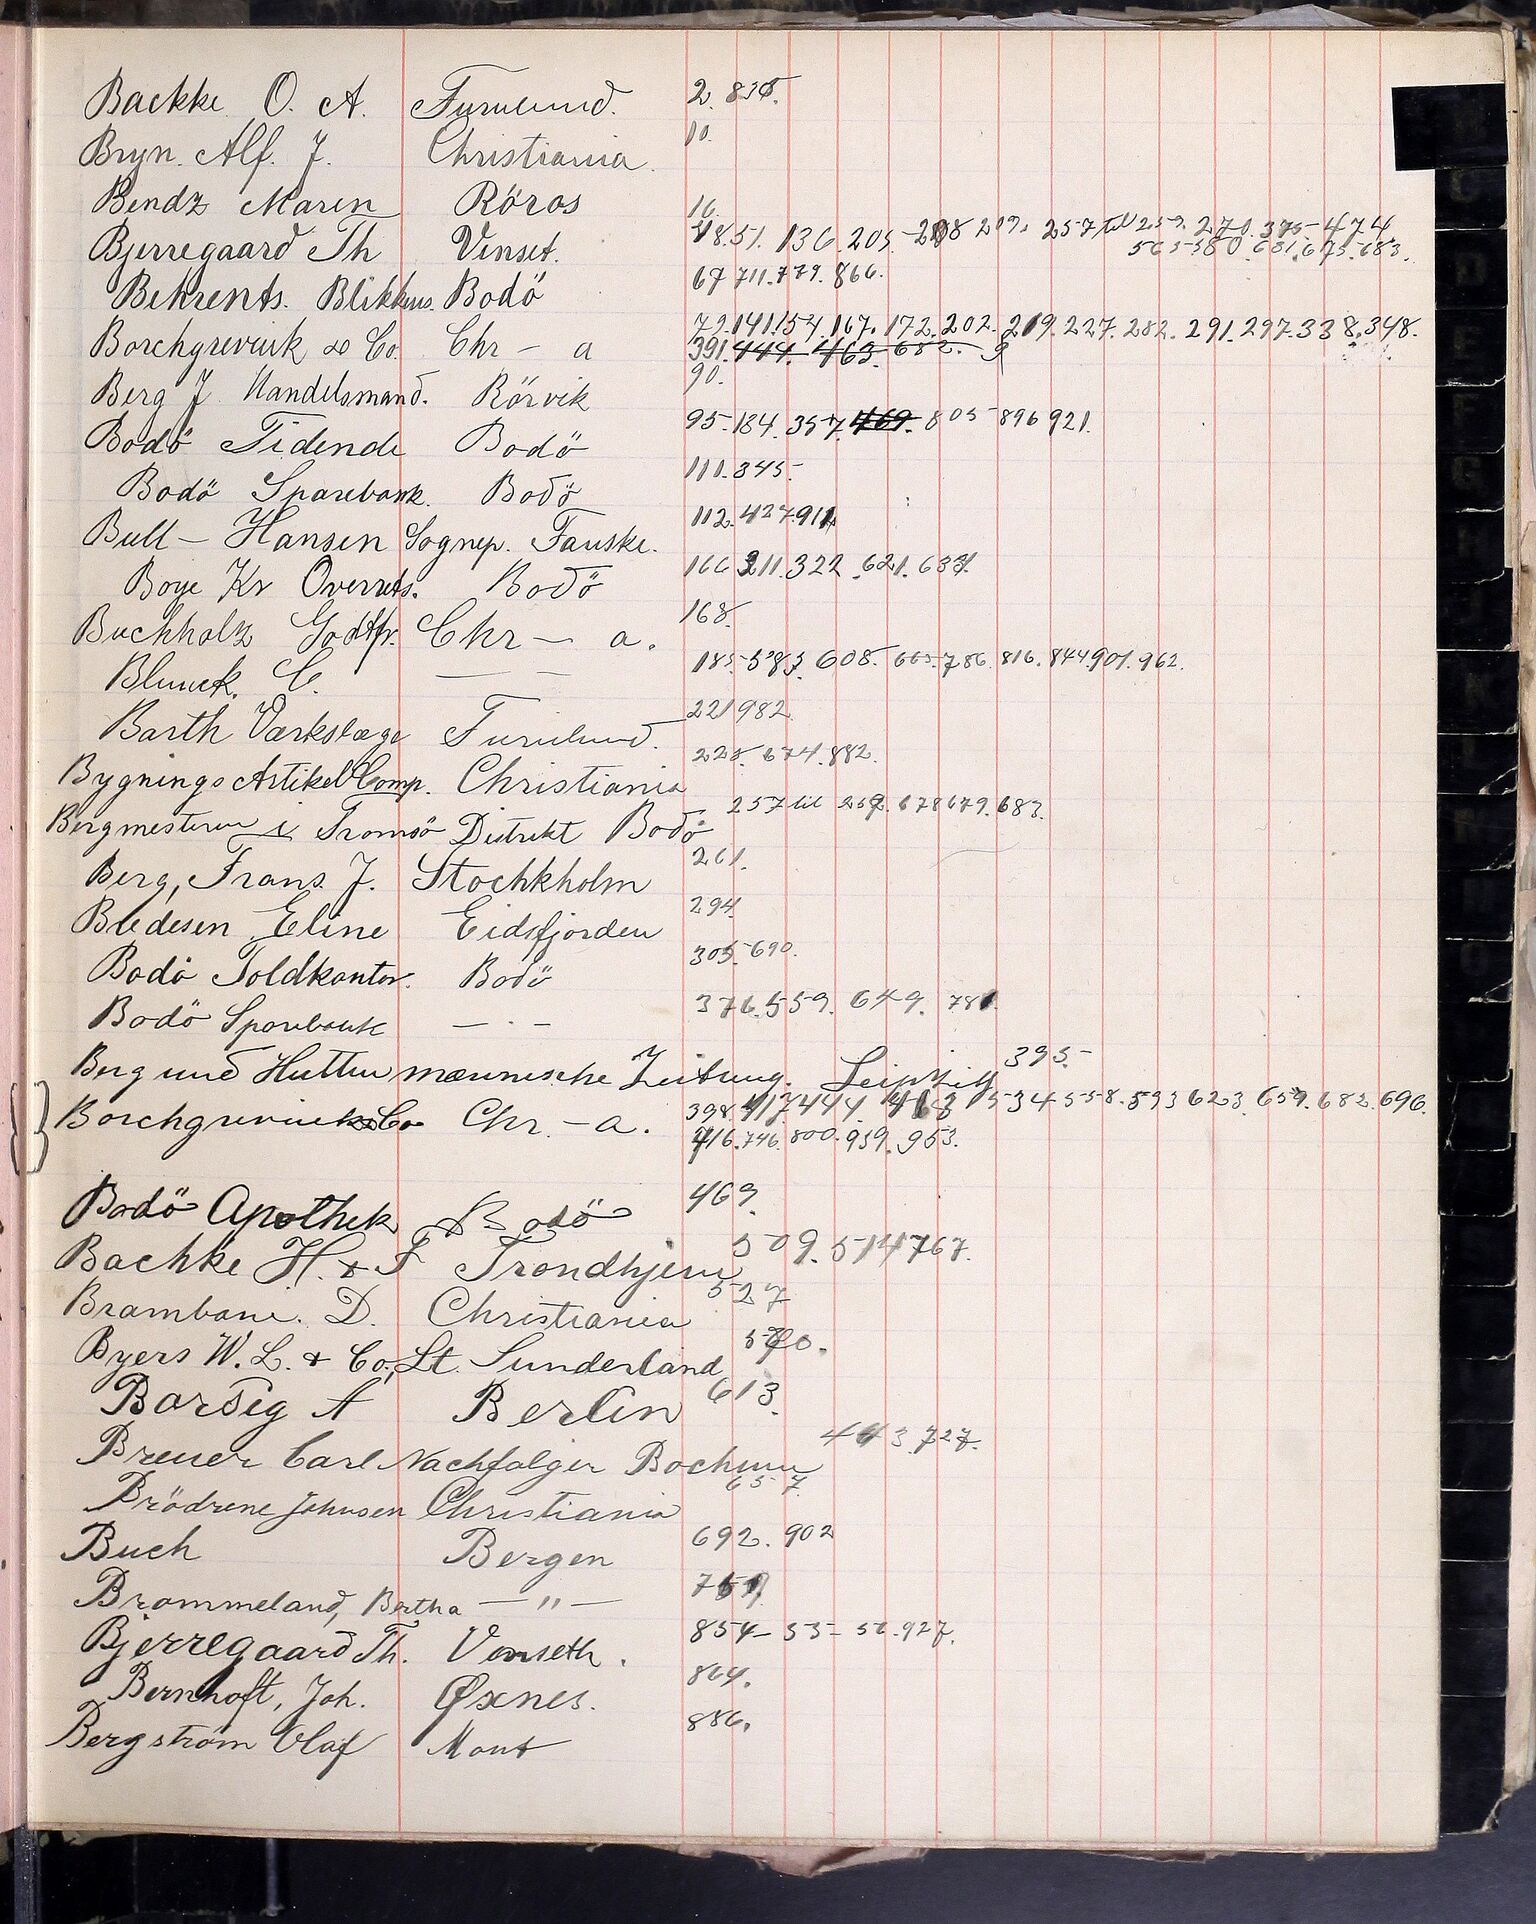 Backke O. A. Furulund. 2. 835.
Bryn. Alf. J. Christiania. 10.
Bendz Maren Röros 16.
Bjerregaard Th Venset. 48.51. 136. 205. 208 209. 257 til 259. 270. 375 - 474
565-580. 631. 675. 683.
Behrents. Blikkens. Bodö 67 711. 779. 866.
Borchgrevink & Co. Chr - a 79. 141. 154. 167. 172. 202. 219. 227. 282. 291. 297. 338. 348.
391. 444. 463. 682.
Berg J Handelsmand. Rörvik 90.
Bodö Tidende Bodö 95. 184. 357. 469. 805 - 896 921.
Bodö Sparebank. Bodö 111. 345.
Bull - Hansen Sognep. Fauske. 112. 427. 911.
Boye Kr Overrets. Bodö 166 211. 322. 621.
Buchholz Godtfr. Chr - a. 168.
Blunck. C. — — 185. 583. 608. 665. 786. 816. 844. 901. 962.
Barth Værkslæge Furulund. 221 982
Bygnings Artikel Comp. Christiania 228. 674. 882.
Bergmesteren i Tromsö Distrikt Bodö 257 til 259. 678 679. 683.
Berg, Frans. J. Stockholm 261.
Bledesen Eline Eidsfjorden 294.
Bodö Toldkontor. Bodö 305. 690.
Bodö Sparebank — · — 376. 559. 649. 781.
Berg und Hutten mænnische Zeitung. Leipzig 395.
Borchgrevink & Co Chr. - a. 398. 417 444. 463 534 558. 593 623. 659. 682. 696.
716. 746. 800. 939. 953.
Bodö Apothek Bodö 469.
Bachke H. & F Trondhjem 509. 514 767.
Brambani. D. Christiania 527
Byers W. L. & Co, Lt. Sunderland 570.
Borsig A Berlin 613.
Breuer Carl Nachfolger Bochum 443. 727.
Brödrene Johnsen Christiania 657
Buch Bergen 692. 902
Brommeland, Bertha — " —
Bjerregaard Th. Venseth. 854 - 55 - 56. 927.
Bernhoft, Joh. Øxnes. 864.
Bergström Olaf Mont 886.